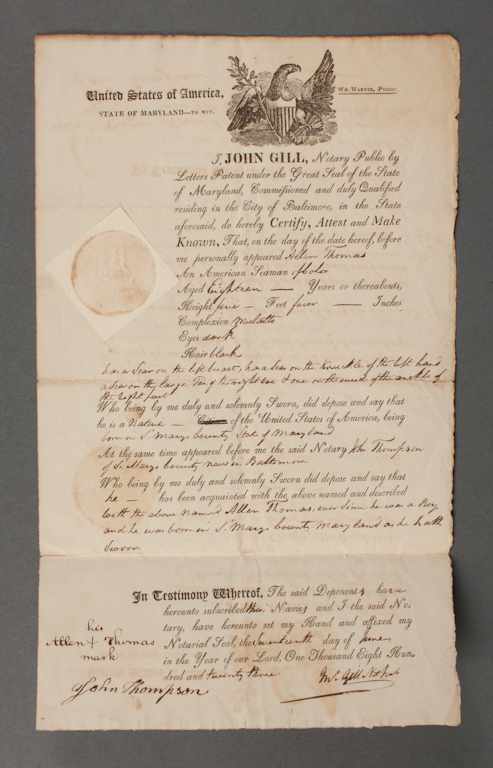 United States of America,
STATE OF MARYLAND—TO WIT.
WM. WARNER, PRINT.
I, JOHN GILL, Notary Public by
Letters Patent under the Great Seal of the State
of Maryland, Commissioned and duly Qualified
residing in the City of Baltimore, in the State
aforesaid, do hereby Certify, Attest and Make
Known, That, on the day of the date hereof, before
me personally appeared Allen Thomas
An American Seaman of
Aged Eighteen — Years or thereabouts,
Height five — Feet four — Inches
Complexion Mulatto
Eyes dark
Hair black
has a Scar on the left breast, has a scar on the of the left hand
a scar on the large Toe of the right & one on the of the ancle of
the right foot
Who being by me duly and solemnly Sworn, did depose and say that
he is a Native — of the United States of America, being
born in St Marys County State of Maryland
At the same time appeared before me the said Notary John Thompson
of St Marys County now in Baltimore
Who being by me duly and solemnly Sworn did depose and say that
he — has been acquainted with the above named and described
with the above named Allen Thomas ever Since he was a Boy
and he was born in St Marys County Maryland as he hath
Sworn
In Testimony Whereof, The said Deponents have
hereunto subscribed their Names and I the said No-
tary, have hereunto set my Hand and affixed my
Notarial Seal, the day of June
in the Year of our Lord, One Thousand Eight Hun-
dred and twenty three
his
Allen + Thomas
mark
John Thompson
Jno. Gill Not Pub